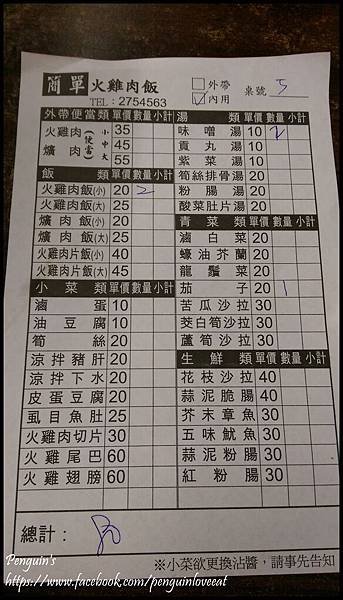 簡單火雞肉飯
TEL：2754563
□外帶
☑內用
桌號 5
外帶便當類 單價 數量 小計
火雞肉 爌肉 (便當)
小 35
中 45
大 55
飯類 單價 數量 小計
火雞肉飯(小) 20 2
火雞肉飯(大) 25
爌肉飯(小) 20
爌肉飯(大) 25
火雞肉片飯(小) 40
火雞肉片飯(大) 45
小菜類 單價 數量 小計
滷蛋 10
油豆腐 10
筍絲 20
涼拌豬肝 20
涼拌下水 20
皮蛋豆腐 20
虱目魚肚 25
火雞肉切片 30
火雞尾巴 60
火雞翅膀 60
湯類 單價 數量 小計
味噌湯 10 2
貢丸湯 10
紫菜湯 10
筍絲排骨湯 20
粉腸湯 20
酸菜肚片湯 20
青菜類 單價 數量 小計
滷白菜 20
蠔油芥蘭 20
龍鬚菜 20
茄子 20 1
苦瓜沙拉 30
茭白筍沙拉 30
蘆筍沙拉 30
生鮮類 單價 數量 小計
花枝沙拉 40
蒜泥脆腸 40
芥末章魚 30
五味魷魚 30
蒜泥粉腸 30
紅粉腸 30
總計： 80
※小菜欲更換沾醬，請事先告知
Penguin's
https://www.facebook.com/penguinloveeat